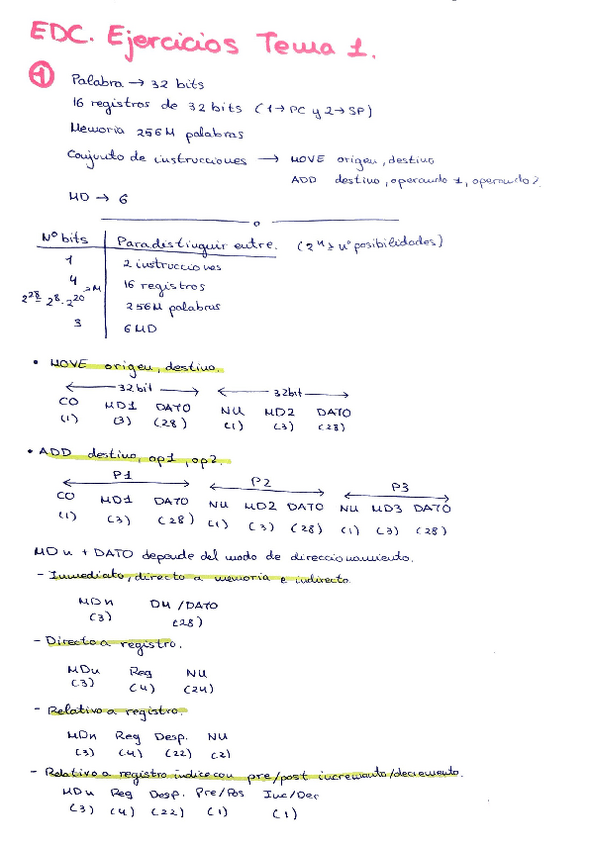 EDC. Ejercicios Tema 1.
1 Palabra → 32 bits
16 registros de 32 bits (1→ PC y 2→ SP)
Memoria 256M palabras
Conjunto de instrucciones → MOVE origen, destino
ADD destino, operando 1, operando 2.
MD → 6
Nº bits Para distinguir entre. (2ⁿ ≥ nº posibilidades)
1 2 instrucciones
4 16 registros
2²⁸ = 2⁸ · 2²⁰ → M 256M palabras
3 6 MD
• MOVE origen, destino.
32 bit 32 bit
CO MD1 DATO NU MD2 DATO
(1) (3) (28) (1) (3) (28)
• ADD destino, op1, op2.
P1 P2 P3
CO MD1 DATO NU MD2 DATO NU MD3 DATO
(1) (3) (28) (1) (3) (28) (1) (3) (28)
MDn + DATO depende del modo de direccionamiento.
- Inmediato, directo a memoria e indirecto.
MDn DM/DATO
(3) (28)
- Directo a registro.
MDn Reg NU
(3) (4) (24)
- Relativo a registro.
MDn Reg Desp. NU
(3) (4) (22) (2)
- Relativo a registro índice con pre/post incremento/decremento.
MDn Reg Desp. Pre/Pos Inc/Der
(3) (4) (22) (1) (1)